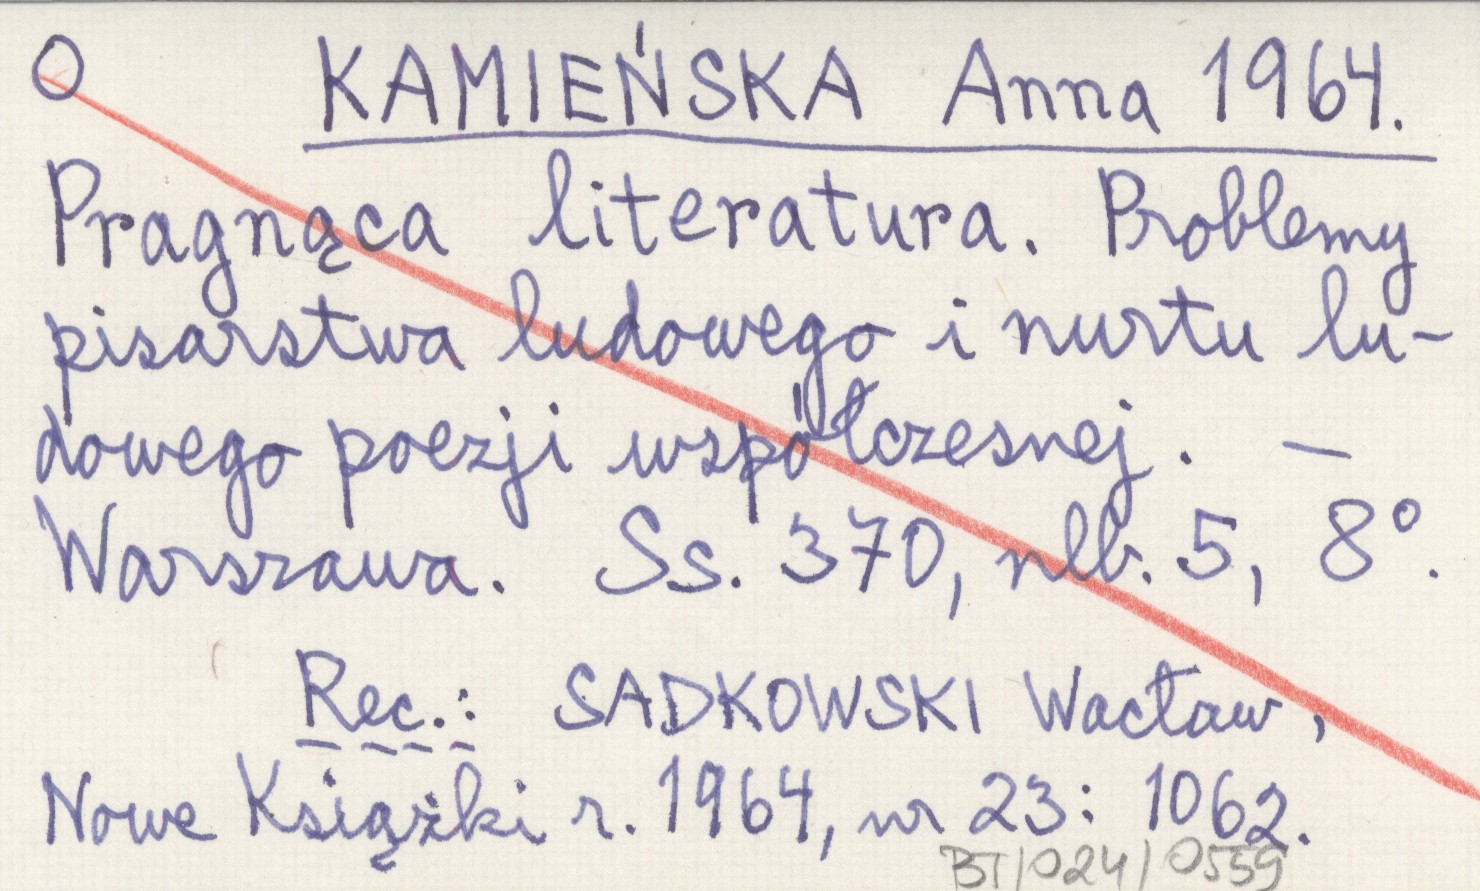 O KAMIEŃSKA Anna 1964.
Pragnąca literatura. Problemy
pisarstwa ludowego i nurtu lu-
dowego poezji współczesnej. —
Warszawa. Ss. 370, nlb. 5, 8°.
Rec.: SADKOWSKI Wacław,
Nowe Książki r. 1964, nr 23: 1062.
BT/024/0559